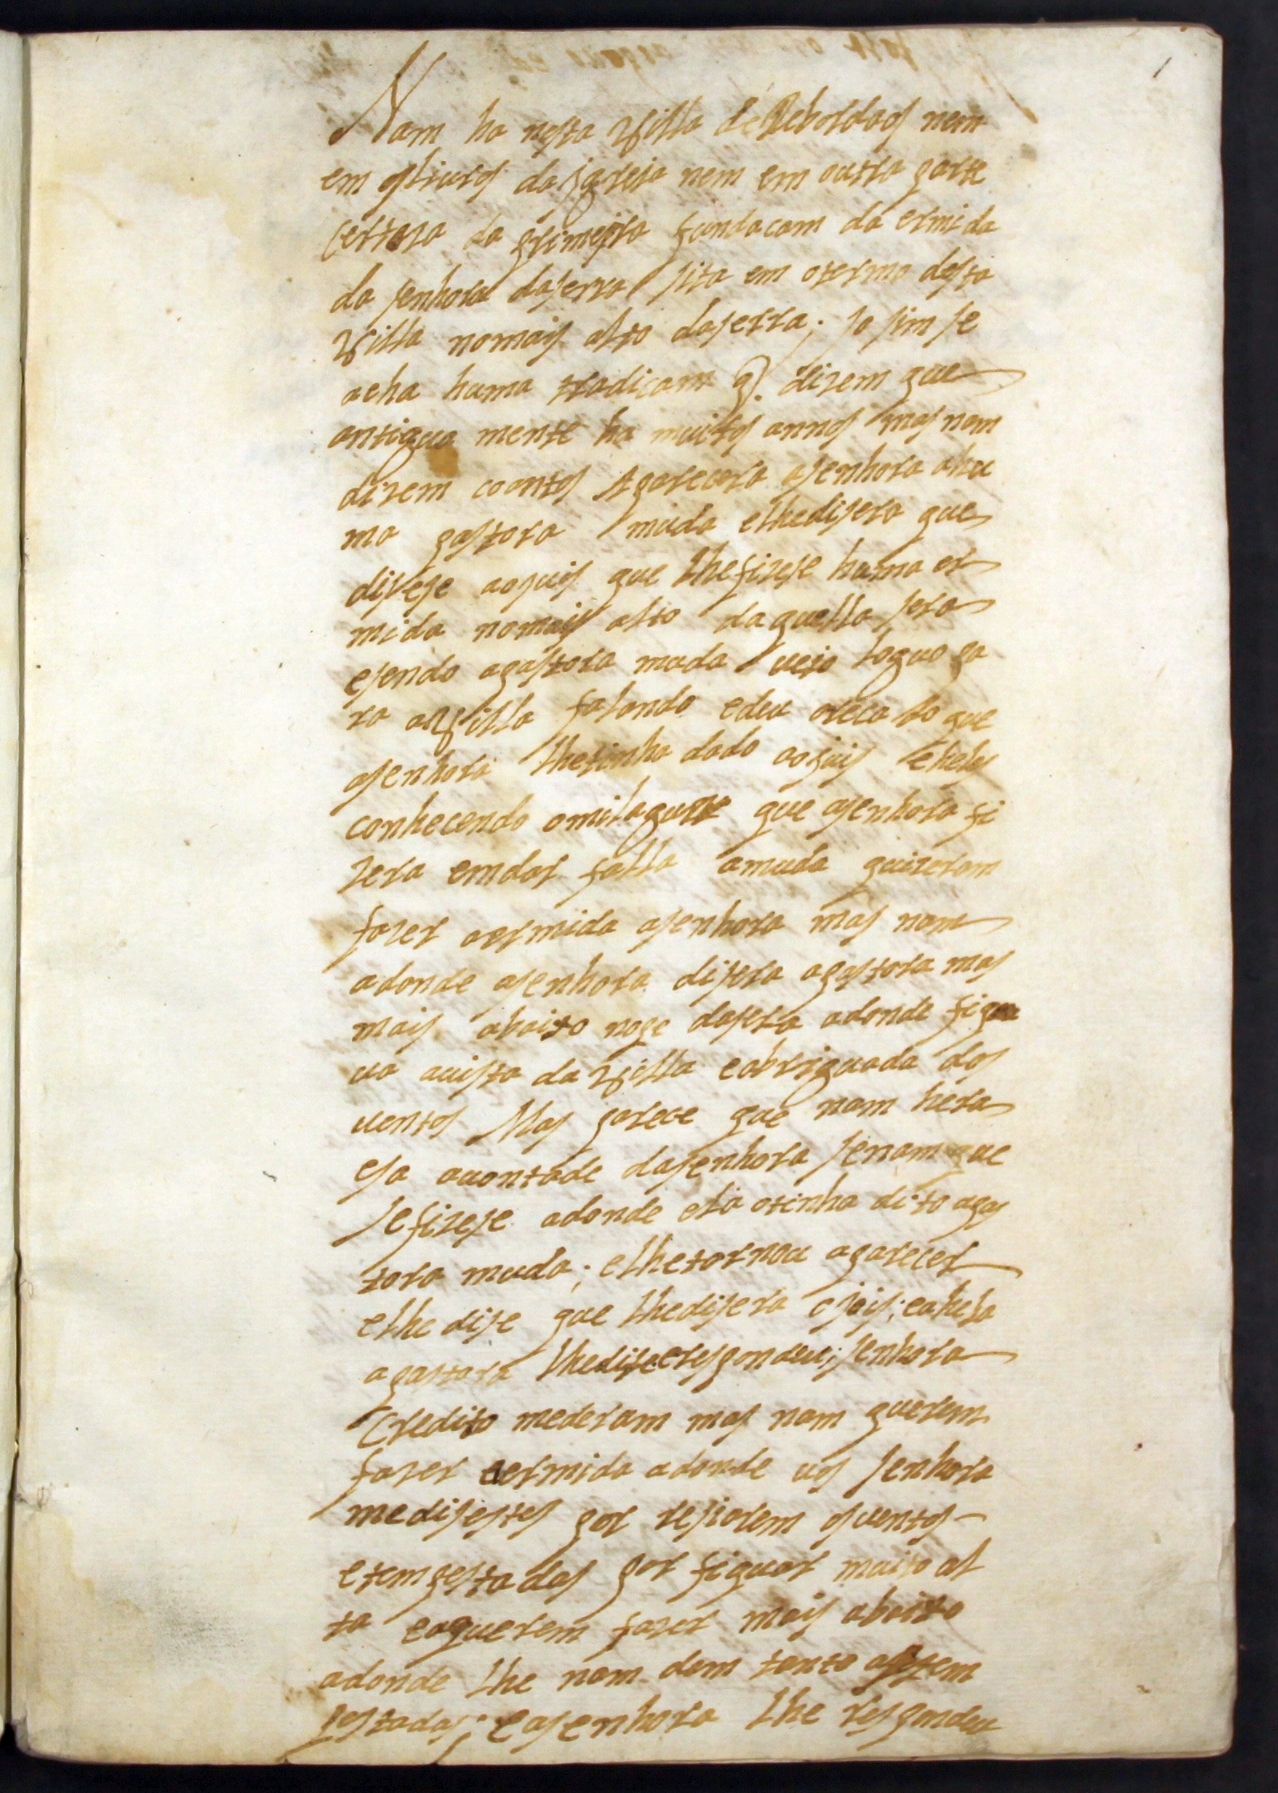 1
Nam ha nesta Villa de Rebordaos nem
em os liuros da igreja nem em outra parte
Certeza da primejra fundacam da ermida
da senhora daserra sita em otermo desta
Villa nomais alto daserra; so sim se
acha huma tradicam q. dizem que
antigua mente ha muitos annos mas nam
dizem coantos Aparecera asenhora ahu
ma pastora muda elhedisera que
disese aojuis que lhefizese huma er
mida nomais alto daquella sera
esendo apastora muda veio loguo pa
ra aVilla falando edeu orecado que
asenhora lhetinha dado aojuis e
conhecendo omilagure que asenhora fi
zera emdar falla amuda quizeram
fazer aermida asenhora mas nam
adonde asenhora disera apastora mas
mais abaixo nope dasera adonde figua
va avista da Villa eabriguada dos
ventos Mas parece que nam hera
esa avontade dasenhora senam que
sefizese adonde ela otinha dito apas
tora muda; elhetornou aparecer
elhe dise que lhedisera ojuis; eahela
apastora lhedise erespondeu; senhora
Credito mederam mas nam querem
fazer aermida adonde vos senhora
medisestes por resiarem osventos
etempestades por figuar muito al
ta eaquerem fazer mais abaixo
adonde lhe nam dem tanto astem
pestades; easenhora lhe respondeu